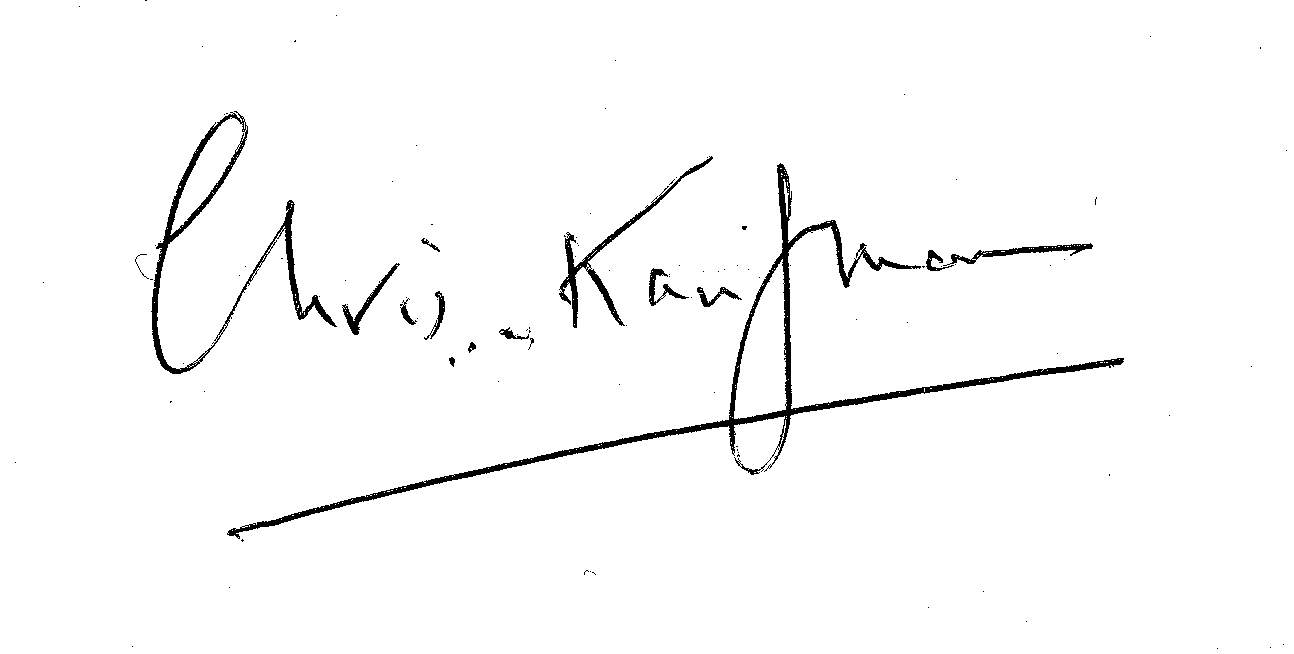 Chris Kaufman